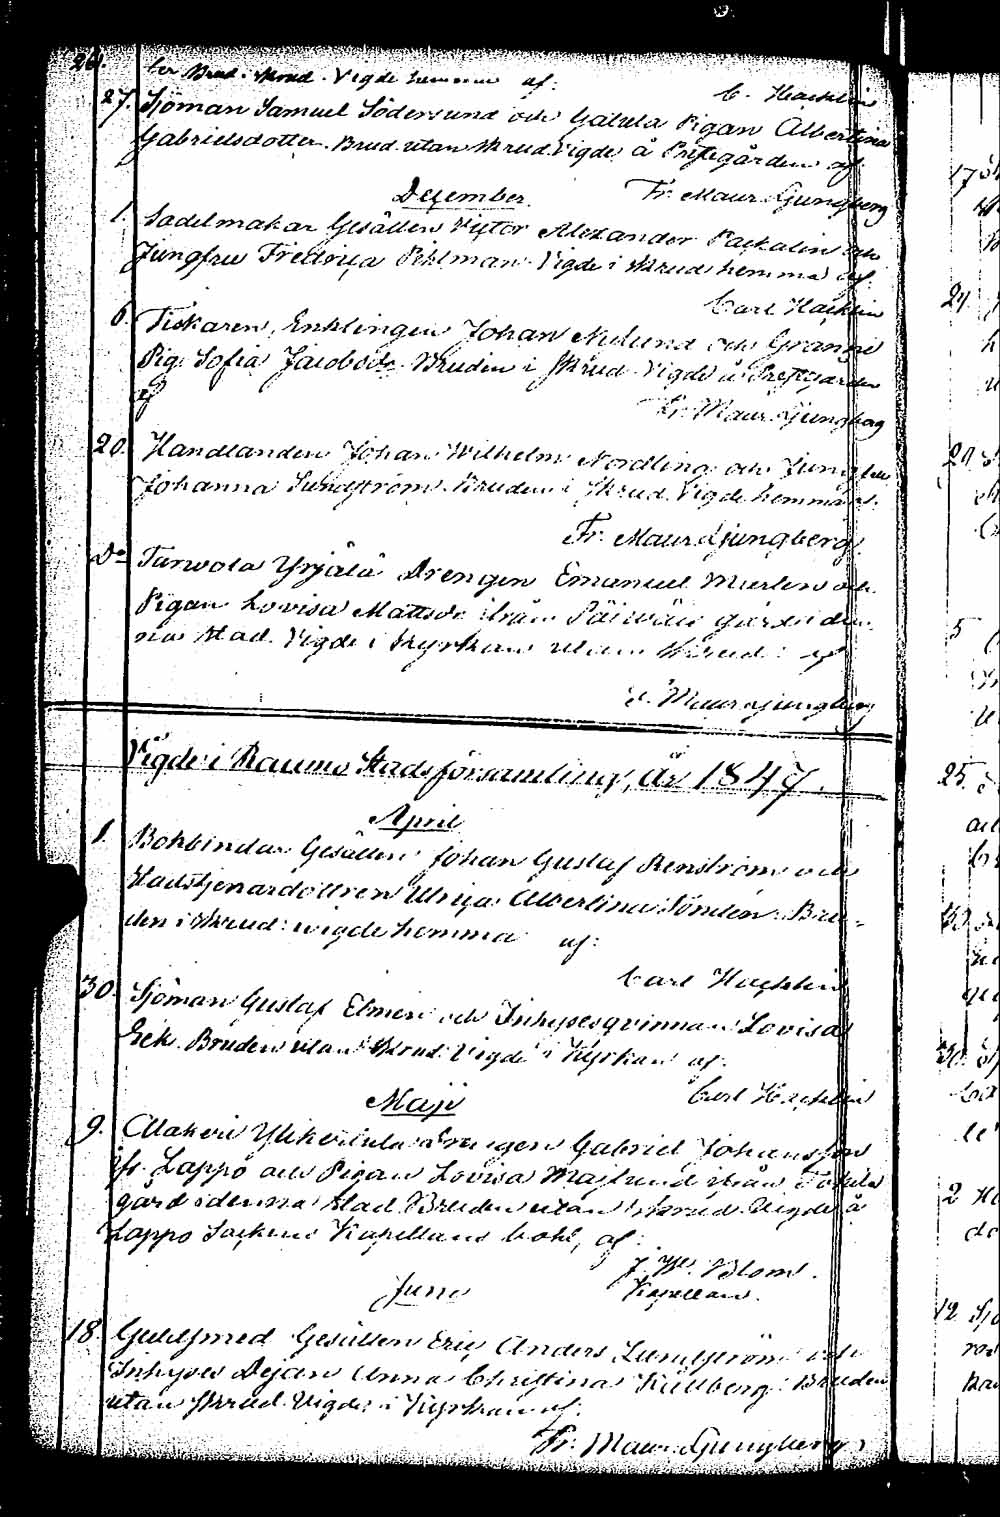 26. ter Brud i skrud. Vigde hemma af:
C. Hacklin
27. Sjöman Samuel Södersund och Gatula Pigan Albertina
Gabrielsdotter. Brud utan skrud. Vigde å Prestgården af:
Fr. Maur. Ljungberg
December.
1. Sadelmakar Gesällen Victor Alexander Packalin och
Jungfru Fredrica Pihlman. Vigde i skrud hemma af:
Carl Hacklin
6. Fiskaren, Enklingen Johan Nylund och Granni
Pig. Sofia Jacobsdr. Bruden i skrud. Vigde å Prestgården
af
Fr. Maur. Ljungberg
20. Handlanden Johan Wilhelm Nordling och Jungfru
Johanna Sundström. Bruden i skrud. Vigde hemma af.
Fr. Maur. Ljungberg.
Do Yrjälä Drengen Emanuel och
Pigan Lovisa Mattsdr ifrån gård i den-
na stad. Vigde i Kyrkan utan skrud: af
Fr. Maur. Ljungberg
Vigde i Raumo Stadsförsamling, År 1847.
April
1. Bokbindar Gesällen Johan Gustaf Renström och
Stadstjenardottren Ulrica Albertina Bru-
den i skrud: wigde hemma af:
Carl Hacklin
30. Sjöman Gustaf Elmen och Inhysesqvinnan Lovisa
Ek. Bruden utan skrud. Vigde i Kyrkan af:
Carl Hacklin
Maji
9. Drengen Gabriel Johansson
ifr. Lappo och Pigan Lovisa Majlund ifrån
gård i denna stad. Bruden utan skrud. Vigde å
Lappo Sockens Kapellans bohl, af:
J. W. Blom.
Kapellan.
Juni
18. Guldsmed Gesällen Eric Anders Lundström och
Inhyses Dejan Anna Christina Kullberg. Bruden
utan skrud. Vigde i Kyrkan af:
Fr. Maur. Ljungberg
17
24
29
5
25.
30.
2
12